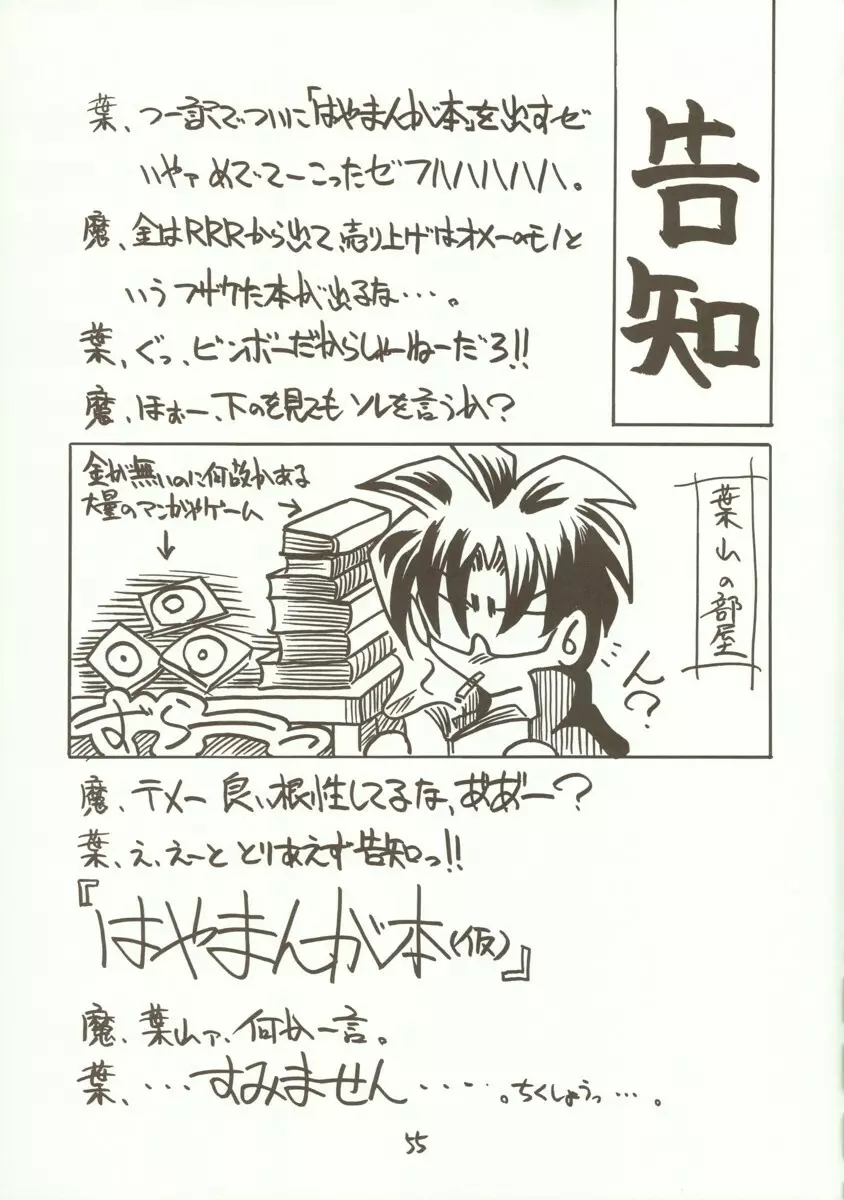 告知
葉、つー訳でついに「はやまんが本」を出すゼ
いやァめでてーこったゼフハハハハハ。
魔、金はRRRから出て、売り上げはオメーのモノと
いうフザケた本が出るな・・・。
葉、ぐっ、ビンボーだからしゃーねーだろ!!
魔、ほぉー、下のを見てもソレを言うか？
金が無いのに何故かある
大量のマンガやゲーム→
↓
葉山の部屋
ん？
ずらーっ
魔、テメー良い根性してるな、ああ゛ー？
葉、え、えーととりあえず告知っ!!
『はやまんが本(仮)』
魔、葉山ァ、何か一言。
葉、・・・すみません・・・・・。ちくしょうっ・・・。
55